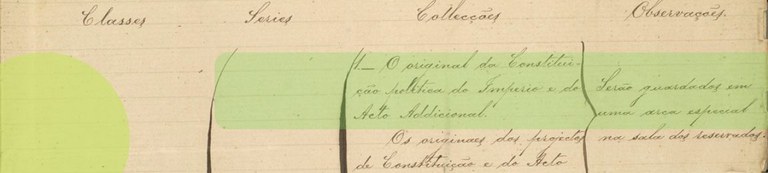 Classes Series Collecções Observações.
1— O original da Constitui-
ção politica do Imperio e do
Acto Addicional.
Os originaes dos projectos
de Constituição e do Acto
Serão guardados em
uma arca especial
na sala dos reservados.